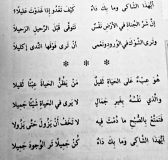 أيهذا الشاكي وما بك داء كيف تغدو إذا غدوت عليلا؟
إن شر الجناة في الأرض نفس تتوقى قبل الرحيل الرحيلا
وترى الشوك في الورود وتعمى أن ترى فوقها الندى إكليلا
* * *
هو عبء على الحياة ثقيل من يظن الحياة عبئا ثقيلا
والذي نفسه بغير جمال لا يرى في الحياة شيئا جميلا
فتمتع بالصبح ما دمت فيه لا تخف أن يزول حتى يزولا
أيهذا الشاكي وما بك داء كن جميلا تر الوجود جميلا